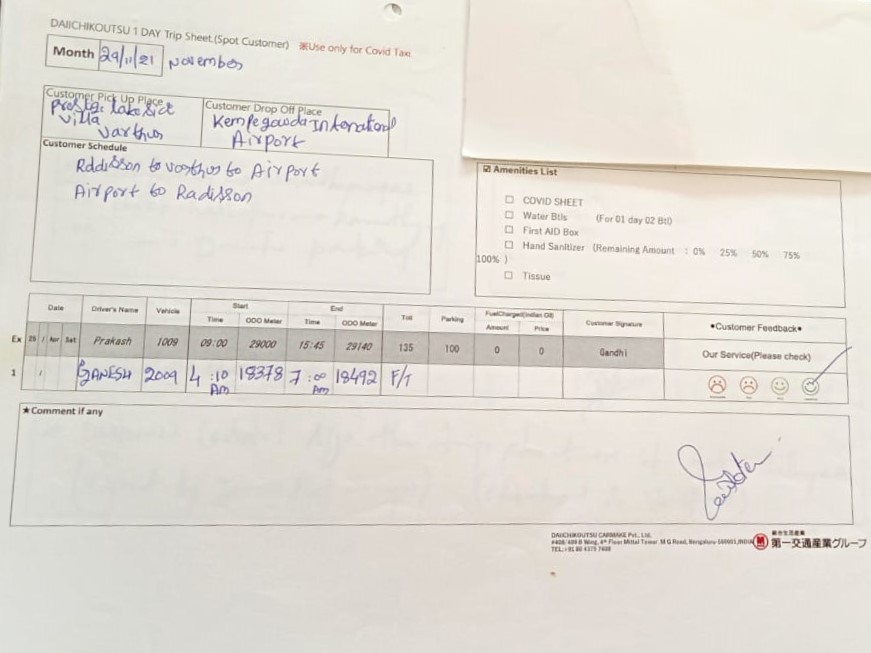 DAIICHIKOUTSU 1 DAY Trip Sheet.(Spot Customer) ※Use only for Covid Taxi.
Month 29/11/21 November
Customer Pick Up Place
Prestige Lake Side
Villa
Varthur
Customer Drop Off Place
Kempegowda International
Airport
Customer Schedule
Rddisson to varthur to Airport
Airport to Radisson
☑ Amenities List
☐ COVID SHEET
☐ Water Btls (For 01 day 02 Btl)
☐ First AID Box
☐ Hand Sanitizer (Remaining Amount : 0% 25% 50% 75%
100% )
☐ Tissue
Date Driver's Name Vehicle Start End Toll Parking FuelCharged(Indian Oil) Customer Signature •Customer Feedback•
Time ODO Meter Time ODO Meter Amount Price
Ex 25 / Apr Sat Prakash 1009 09:00 29000 15:45 29140 135 100 0 0 Gandhi Our Service(Please check)
1 / GANESH 2009 4:10 Am 18378 7:00 Am 18492 F/T
★Comment if any
DAIICHIKOUTSU CARMAKE Pvt., Ltd.
#408/409 B Wing, 4th Floor Mittal Tower M G Road, Bengaluru-560001,INDIA
TEL:+91 80 4375 7408
総合生活産業
第一交通産業グループ